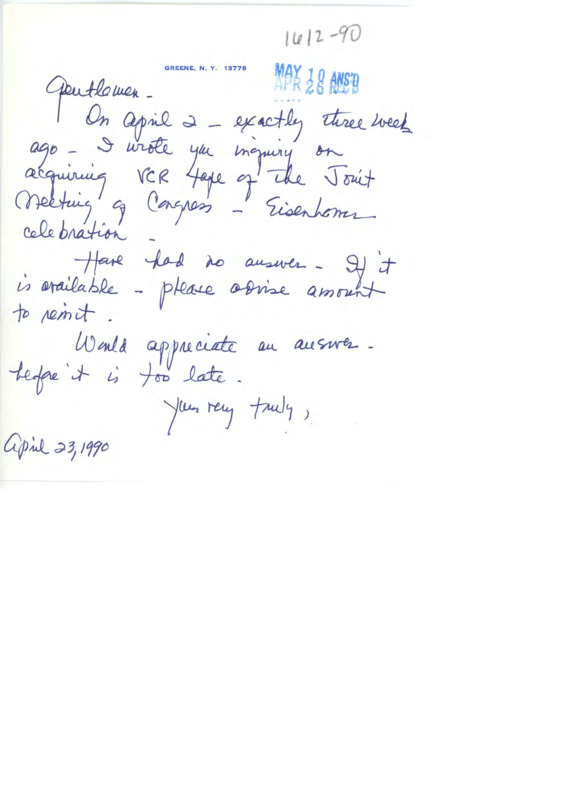 1612-90
GREENE, N. Y. 13778
MAY 10 ANS'D
APR 26 REC'D
Gentlemen -
On April 2 - exactly three week
ago - I wrote you inquiry on
acquiring VCR tape of the Joint
Meeting of Congress - Eisenhower
celebration -
Have had no answer - If it
is available - please advise amount
to remit.
Would appreciate an answer -
before it is too late.
Yours very truly,
April 23, 1990